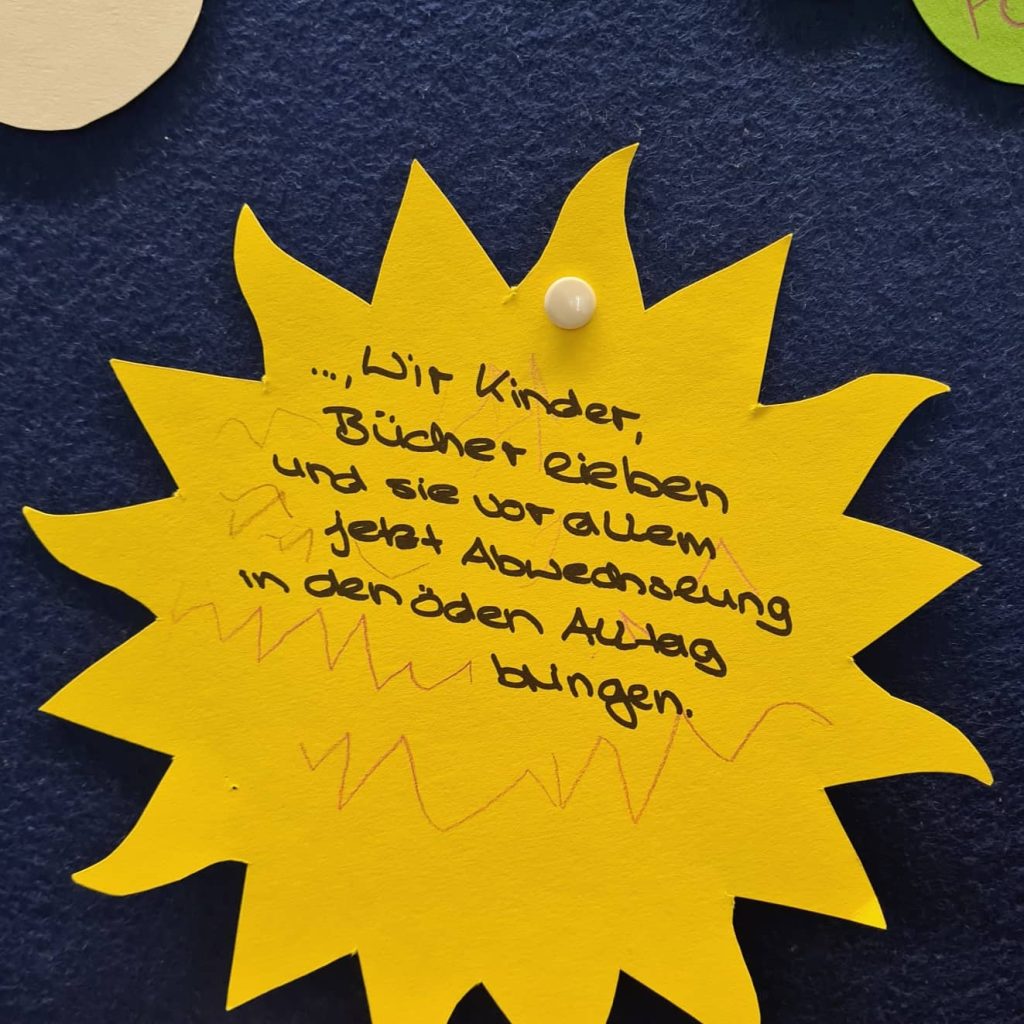 ..., Wir Kinder,
Bücher lieben
und sie vor allem
jetzt Abwechslung
in den öden Alltag
bringen.